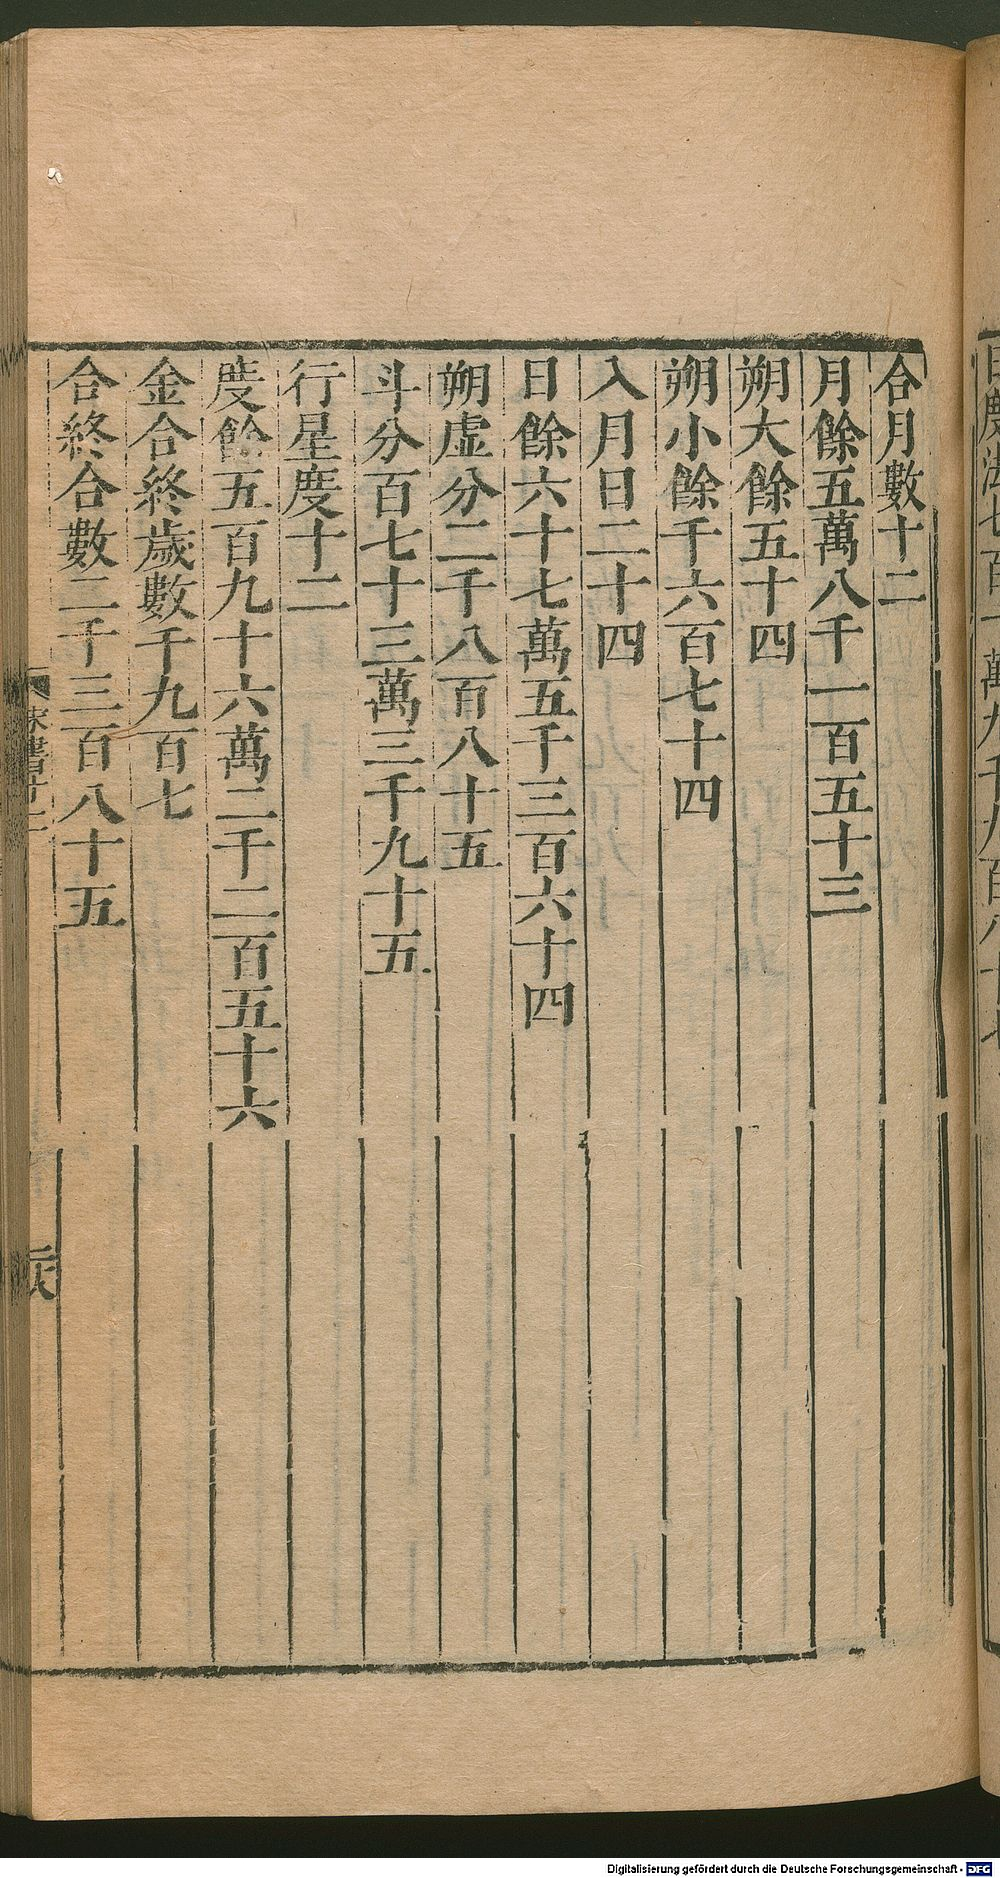 合月數十二
月餘五萬八千一百五十三
朔大餘五十四
朔小餘千六百七十四
入月日二十四
日餘六十七萬五千三百六十四
朔虛分二千八百八十五
斗分百七十三萬三千九十五
行星度十二
度餘五百九十六萬二千二百五十六
金合終歲數千九百七
合終合數二千三百八十五
Digitalisierung gefördert durch die Deutsche Forschungsgemeinschaft - DFG